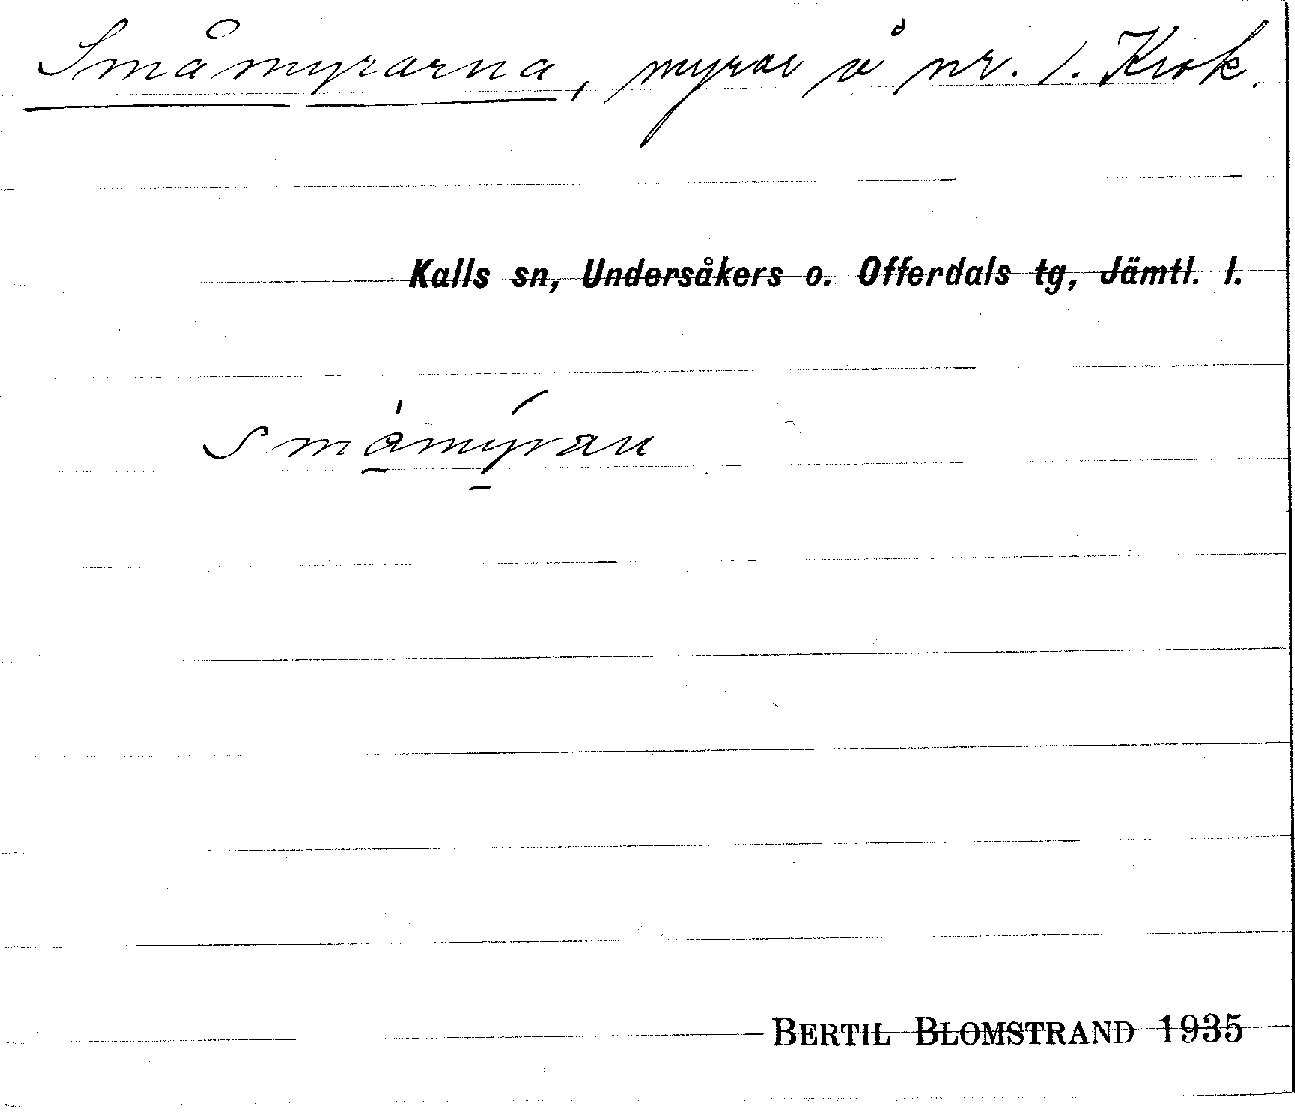 Småmyrarna, myrar å nr. 1. Krok.
Kalls sn, Undersåkers o. Offerdals tg, Jämtl. l.
BERTIL BLOMSTRAND 1935